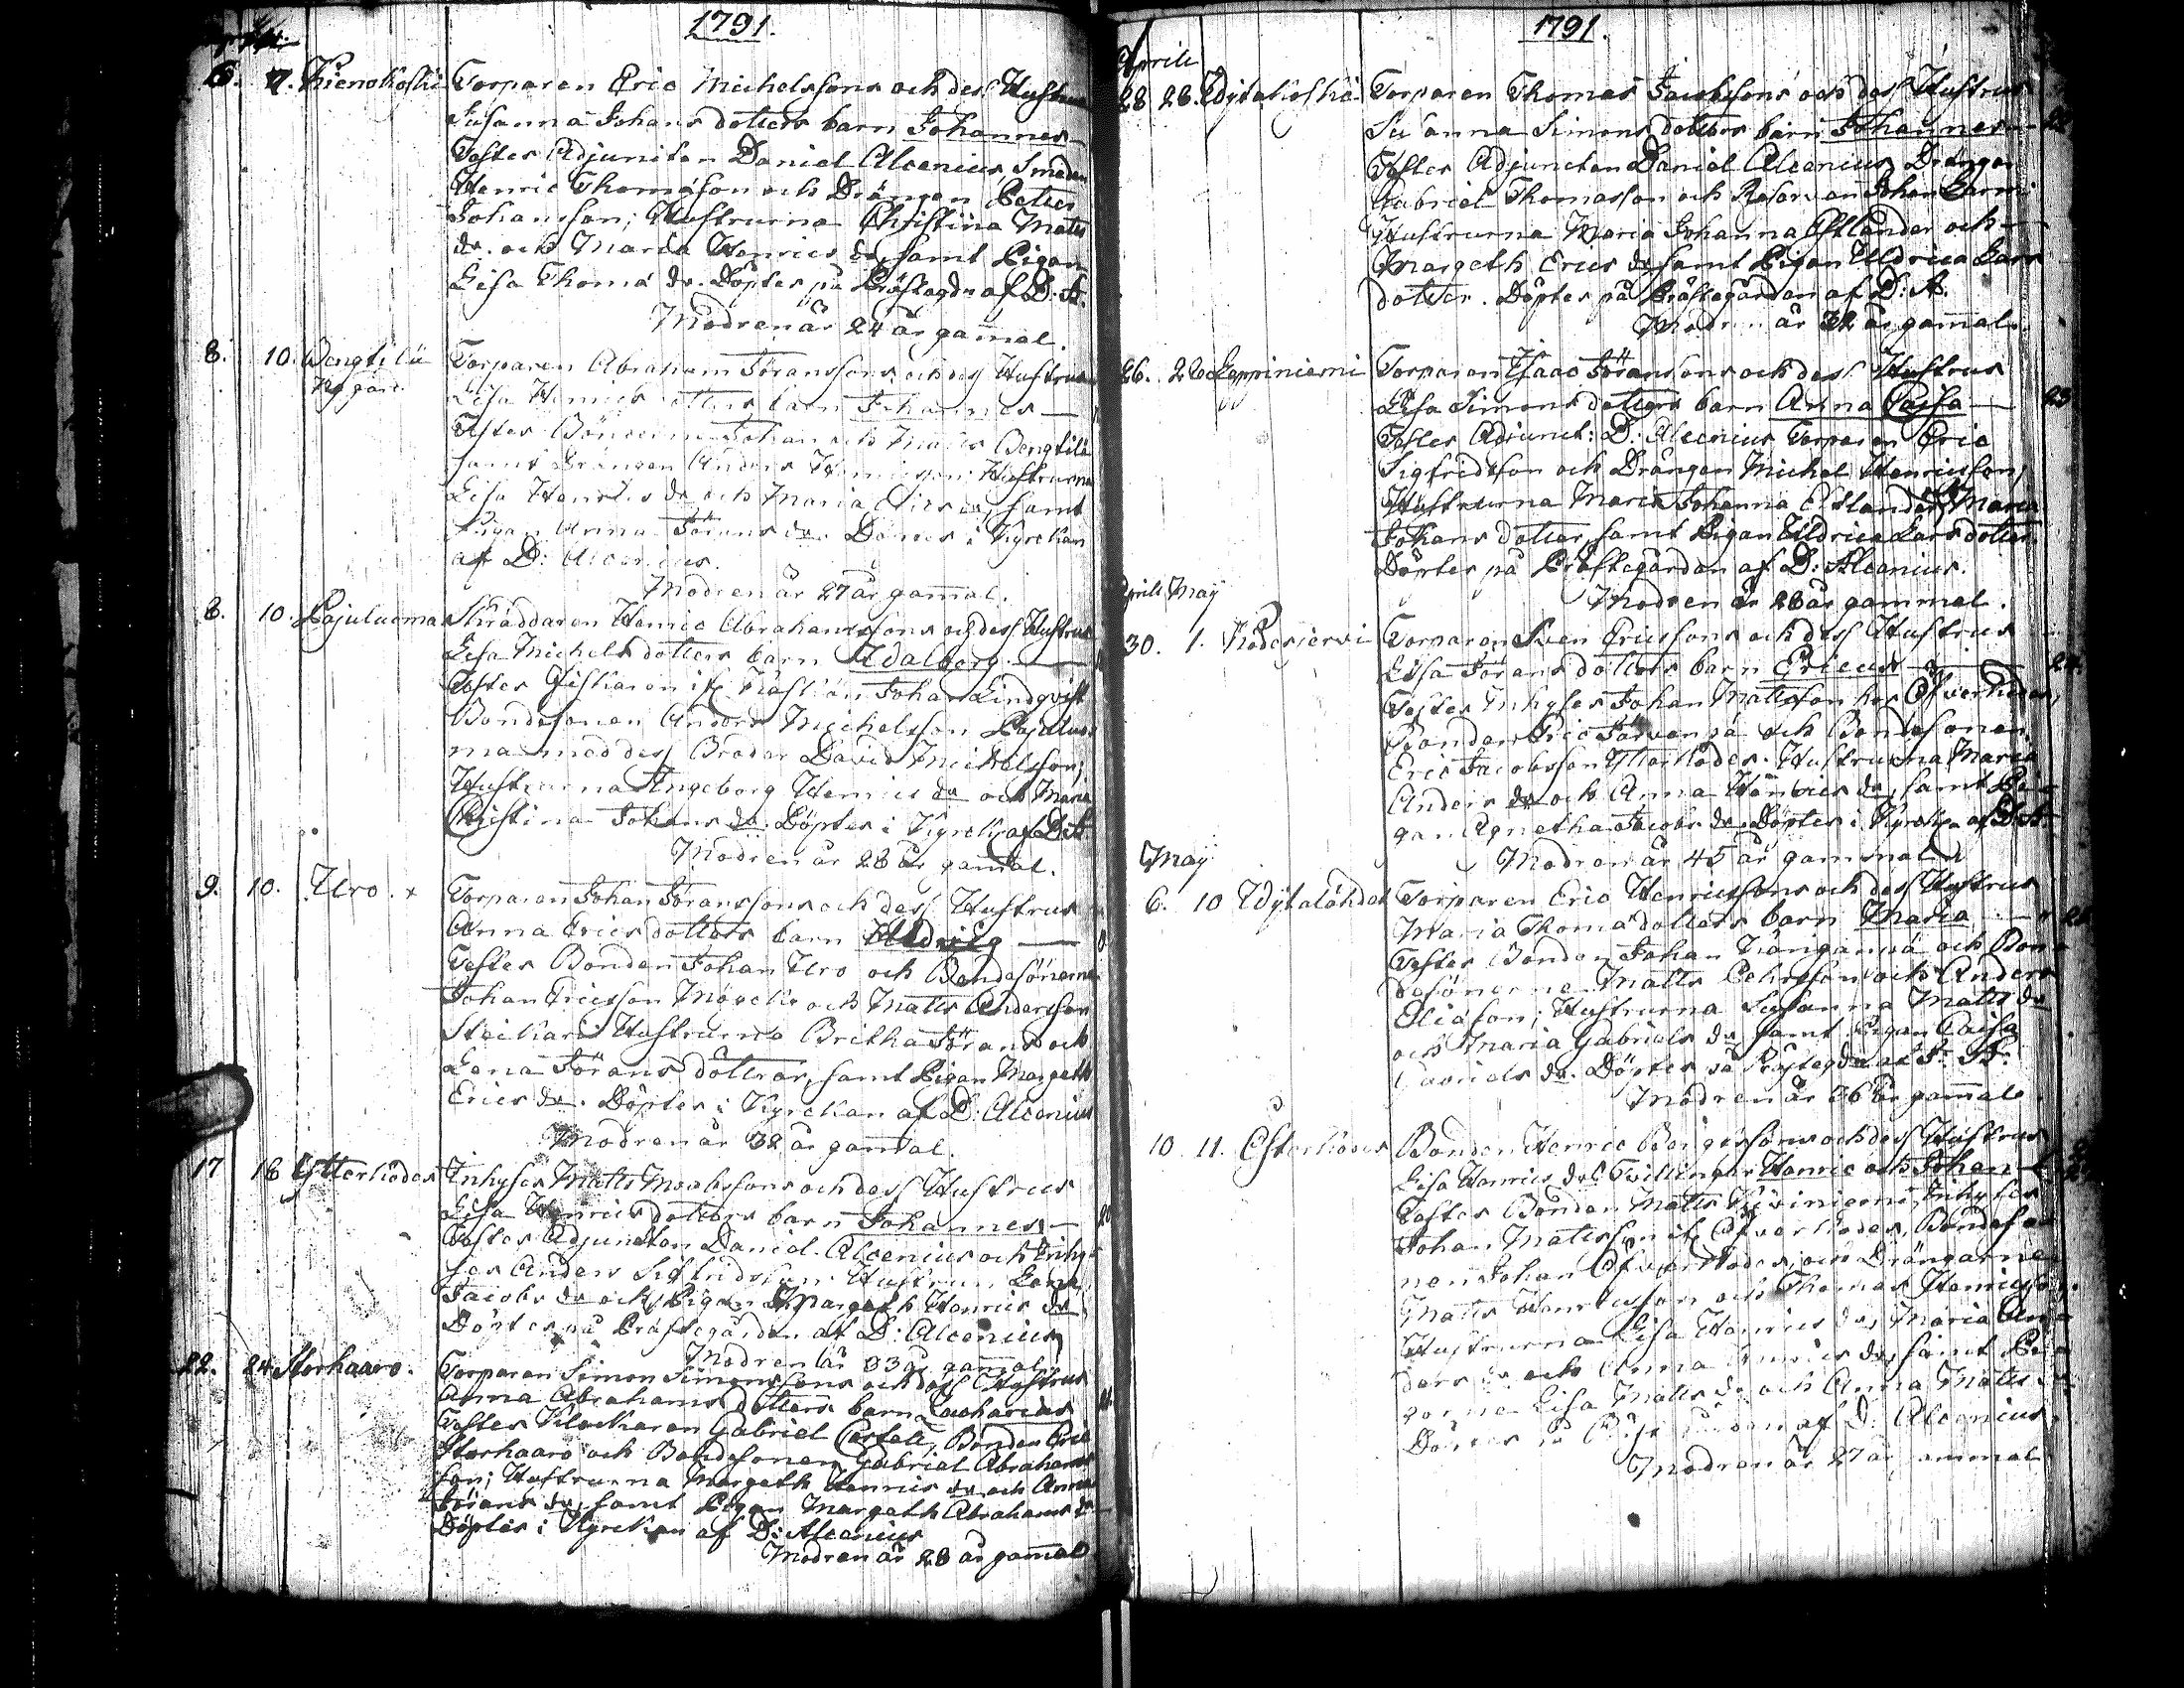 1791.
6. 7. Kienokoski Torparen Eric Michelssons och dess Hustrus
Susanna Johans dotters barn Johannes
Testes Adjuncten Daniel Alcenius Smeden
Henric Thomasson och Drängen Petter
Johansson; Hustrurna Christina Matts
dr. och Marda Henrics dr, samt Pigan
Lisa Thomæ dr. Döptes på Prästegdn af D: A.
Modren är 24 år gammal.
8. 10. Bengtilä Torparen Abraham Jöranssons och dess Hustrus
ny gård. Lisa Henrics dotters barn Johannes
Testes Bönderne Johan och Matts Bengtilä
samt Drängen Anders Henricsson; Hustrurna
Lisa Henrics dr och Maria Erics dr, samt
Pigan Anna Jörans dr. Döptes i Kyrckan
af D: Alcenius.
Modren är 27 år gammal.
8. 10. Pajuluoma Skräddaren Henric Abrahamssons och dess Hustrus
Lisa Michels dotters barn Adalborg
Testes Johan Lindqvist
Bondesonen Anders Michelsson Pajaluo
ma med dess Broder David Michelsson;
Hustrurna Ingeborg Henrics dr och Maria
Christina Johans dr. Döptes i Kyrck. af D: A
Modren är 28 år gammal.
9. 10. Uro. x Torparen Johan Jöranssons och dess Hustrus
Anna Erics dotters barn
Testes Bonden Johan Uro och Bondesönerne
Johan Ericsson och Matts Andersson
Steikari Hustrurna Britha Jörans och
Lena Jörans döttrar, samt Pigan Margeth
Erics dr. Döptes i Kyrckan af D: Alcenius
Modren är 32 år gammal.
17 18 Ytterkodes Inhyses Matts Mattssons och dess Hustrus
Lisa Henrics dotters barn Johannes
Testes Adjuncten Daniel Alcenius och Inhy
ses Anders Sigfridsson Hustrun Lena
Jacobs dr och Pigan Margeth Henrics dr
Döptes på Prästegården af D: Alcenius
Modren är 33 år gammal.
22. 24 Storhaaro. Torparen Simon Simonssons och dess Hustrus
Anna Abrahams dotters barn Zacharias
Testes Klockaren Gabriel Bonden Eric
Storhaaro och Bondesonen Gabriel Abrahams
son; Hustrurna Margeth Henrics dr och Anna
Jörans dr, samt Pigan Margeth Abrahams dr
Döptes i Kyrckan af D: Alcenius
Modren är 28 år gammal
1791.
Aprili
28 28. Torparen Thomas Jacobssons och dess Hustrus
Susanna Simons dotters barn Johannes
Testes Adjuncten Daniel Alcenius Drängen
Gabriel Thomasson och Johan Larm
Hustrurna Maria Johanna Estlander och
Margeth Erics dr samt Pigan Uldrica Lars
dotter. Döptes på Prästegården af D: A.
Modren är 32 år gammal.
26. 28 Leppiniemi Torparen Isaac Jöranssons och dess Hustrus
Lisa Simons dotters barn Anna Caisa 23
Testes Adjunct: D: Alcenius Torparen Eric
Sigfridsson och Drängen Michel Henricsson,
Hustrurna Maria Johanna Estlander, Maria
Johans dotter, samt Pigan Uldrica Lars dotter
Döptes på Prästegården af D: Alcenius.
Modren är 28 år gammal.
Aprili May
30. 1. Kodesjervi Torparen Sven Ericssons och dess Hustrus
Lisa Jörans dotters barn Ericus 24.
Testes Inhyses Johan Mattsson hos Öfverkodes,
Bonden Eric och Bondesonen
Eric Jacobsson Ytterkodes. Hustrurna Maria
Anders dr och Anna Henrics dr, samt Pi
gan Agnetha Jacobs dr. Döptes i Kyrck. af D: A
Modren är 45 år gammal
May
6. 10 Torparen Eric Henricssons och dess Hustrus
Maria Thomæ dotters barn Maria 25
Testes Bonden Johan Kanganpä och Bon
desönerne Matts Pehrsson och Anders
Eliason; Hustrurna Susanna Matts dr
och Maria Gabriels dr samt Pigan Caisa
Gabriels dr. Döptes på Prästegdn af D: A:
Modren är 36 år gammal.
10. 11. Österkodes Bonden Henric Börgerssons och dess Hustrus
Lisa Henrics drs Tvillingar Henric och Johan
Testes Bonden Matts Kiviniemi, Inhyses
Johan Mattsson it. Öfverkodes, Bondeso
nen Johan Öfverkodes, och Drängarne
Matts Henricsson och Thomas Henricsson.
Hustrurna Lisa Henrics dr, Maria An
ders dr och Anna Henrics dr, samt Pi
gorne Lisa Matts dr och Anna Matts dr
Döptes på Prästegården af D: Alcenius.
Modren är 27 år gammal